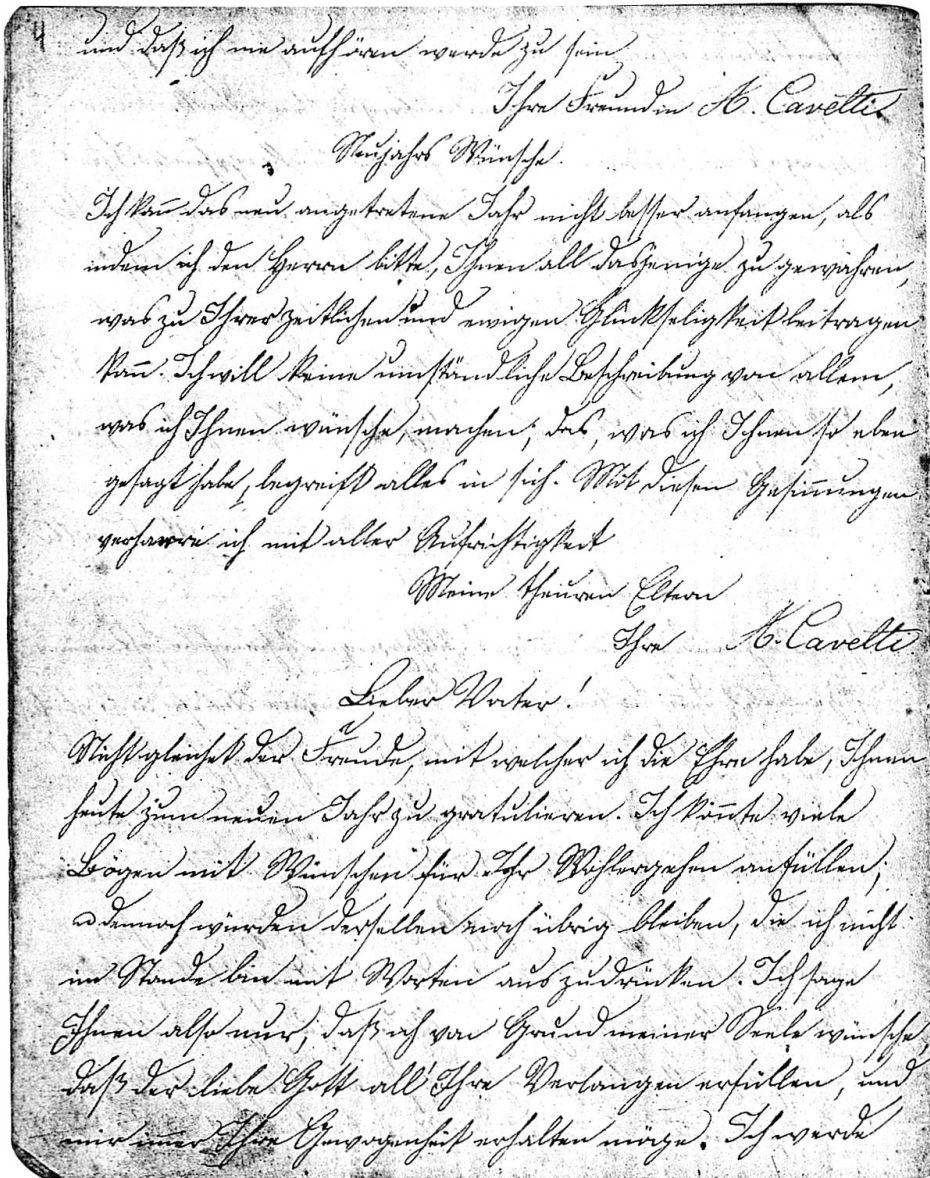 4
und daß ich nie aufhören werde zu sein
Ihre Freundin A. Cavelti.
Neujahrs Wünsche.
Ich kann̄ das neu angetretene Jahr nicht besser anfangen, als
indem ich den Herrn bitte, Ihnen all dasjenige zu gewähren,
was zu Ihrer zeitlichen und ewigen Glückseligkeit beitragen
kan̄. Ich will keine umständliche Beschreibung von allem,
was ich Ihnen wünsche, machen; das, was ich Ihnen so eben
gesagt habe, begreift alles in sich. Mit diesen Gesin̄ungen
verharre ich mit aller Aufrichtigkeit
Meine theuren Eltern
Ihre A. Cavelti
Lieber Vater!
Nicht gleichet der Freude, mit welcher ich die Ehre habe, Ihnen
heute zum neuen Jahr zu gratulieren. Ich kön̄te viele
Bögen mit Wünschen für Ihr Wohlergehen anfüllen;
u dennoch würden derselben noch übrig bleiben, die ich nicht
im Stande bin mit Worten auszudrücken. Ich sage
Ihnen also nur, daß ich von Grund meiner Seele wünsche,
daß der liebe Gott all' Ihre Verlangen erfüllen, und
mir im̄er Ihre Gewogenheit erhalten möge. Ich werde